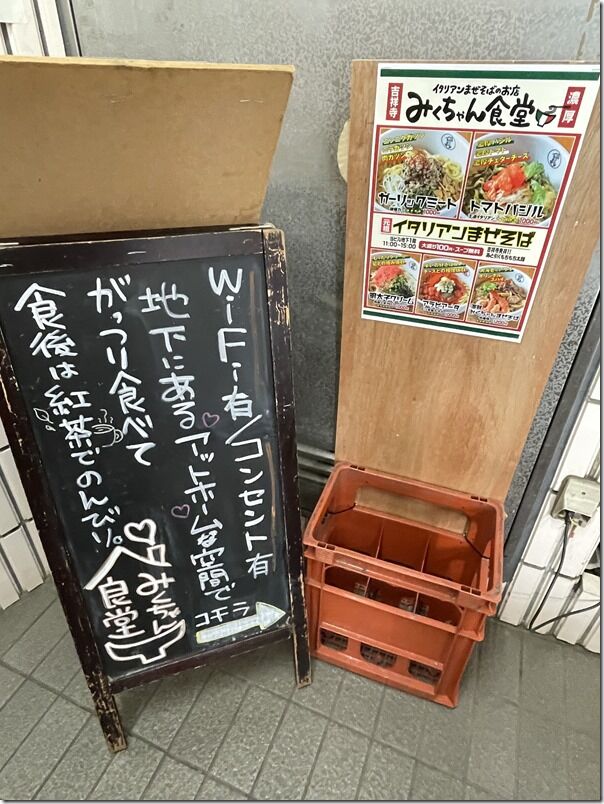 WiFi有/コンセント有
地下にあるアットホームな空間で
がっつり食べて
食後は紅茶でのんびり。
みくちゃん
食堂
コチラ
吉祥寺
イタリアンまぜそばのお店
みくちゃん食堂
濃厚
ガーリックミート
1000
トマトバジル
1000
元祖
イタリアンまぜそば
当ビル地下1階
11:00~15:00
大盛り100円・スープ無料
明太子クリーム
アラビアータ